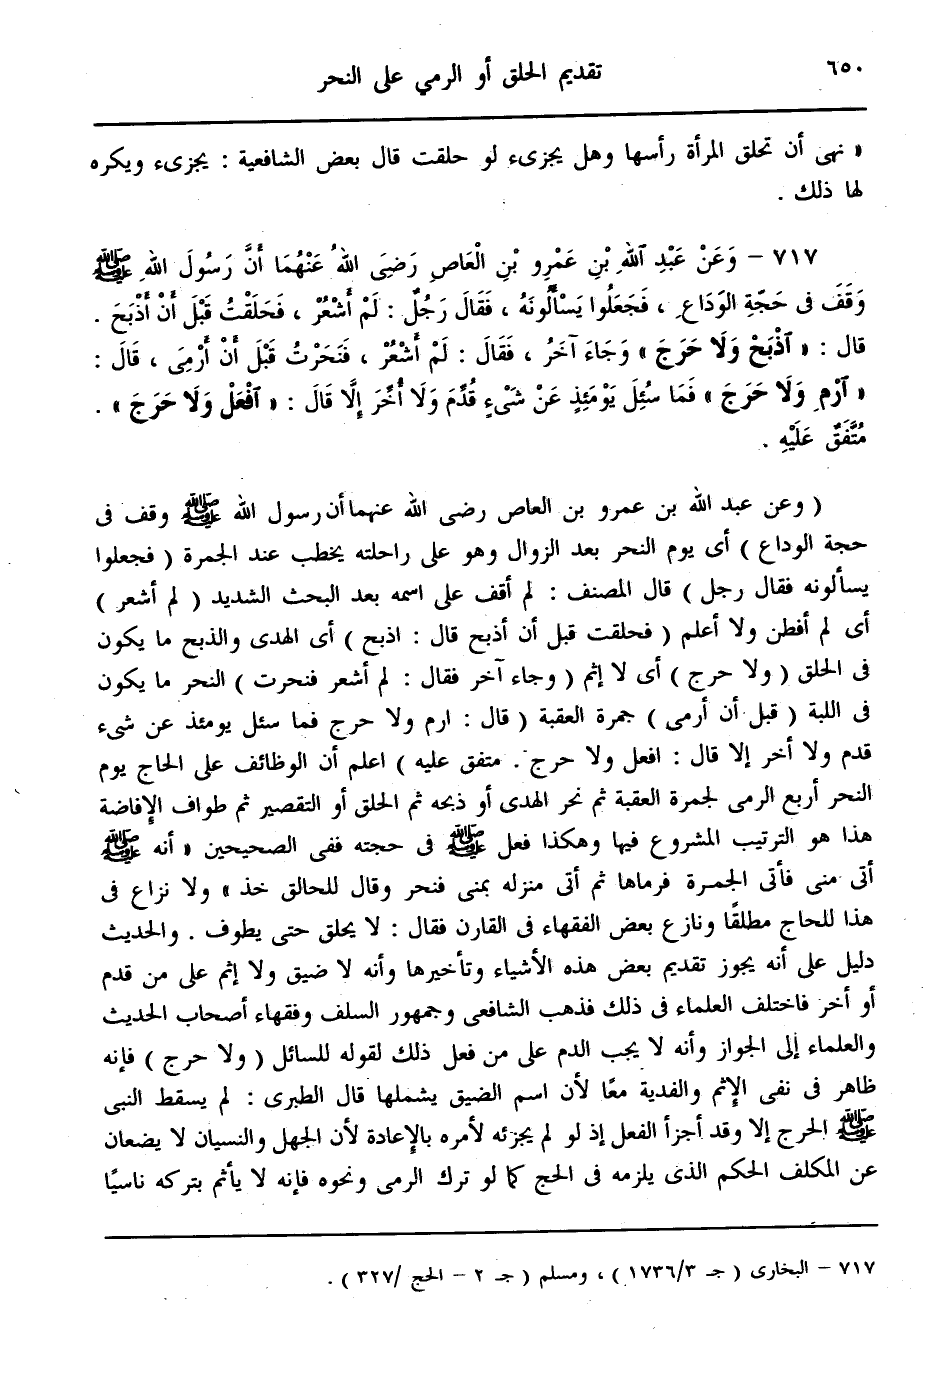 ٦٥٠
تقديم الحلق أو الرمي على النحر
« نهى أن تحلق المرأة رأسها وهل يجزىء لو حلقت قال بعض الشافعية : يجزىء ويكره
لها ذلك .
٧١٧ – وَعَنْ عَبْدِ ٱللهِ بْنِ عَمْرِو بْنِ الْعَاصِ رَضِىَ اللهُ عَنْهُمَا أَنَّ رَسُولَ اللهِ ﷺ
وَقَفَ فى حَجَّةِ الوَدَاعِ ، فَجَعَلُوا يَسْأَلُونَهُ ، فَقَالَ رَجُلٌ : لَمْ أَشْعُرْ ، فَحَلَقْتُ قَبْلَ أَنْ أَذْبَحَ .
قال : « ٱذْبَحْ وَلَا حَرَجَ » وَجَاءَ آخَرُ ، فَقَالَ : لَمْ أَشْعُرْ ، فَنَحَرْتُ قَبْلَ أَنْ أَرْمِىَ ، قَالَ :
« ٱرْمِ وَلَا حَرَجَ » فَمَا سُئِلَ يَوْمَئِذٍ عَنْ شَىْءٍ قُدِّمَ وَلَا أُخِّرَ إِلَّا قَالَ : « ٱفْعَلْ وَلَا حَرَجَ » .
مُتَّفَقٌ عَلَيْهِ .
( وعن عبد الله بن عمرو بن العاص رضى الله عنهما أن رسول الله ﷺ وقف فى
حجة الوداع ) أى يوم النحر بعد الزوال وهو على راحلته يخطب عند الجمرة ( فجعلوا
يسألونه فقال رجل ) قال المصنف : لم أقف على اسمه بعد البحث الشديد ( لم أشعر )
أى لم أفطن ولا أعلم ( فحلقت قبل أن أذبح قال : اذبح ) أى الهدى والذبح ما يكون
فى الحلق ( ولا حرج ) أى لا إثم ( وجاء آخر فقال : لم أشعر فنحرت ) النحر ما يكون
فى اللبة ( قبل أن أرمى ) جمرة العقبة ( قال : ارم ولا حرج فما سئل يومئذ عن شىء
قدم ولا أخر إلا قال : افعل ولا حرج . متفق عليه ) اعلم أن الوظائف على الحاج يوم
النحر أربع الرمى لجمرة العقبة ثم نحر الهدى أو ذبحه ثم الحلق أو التقصير ثم طواف الإفاضة
هذا هو الترتيب المشروع فيها وهكذا فعل ﷺ فى حجته ففى الصحيحين « أنه ﷺ
أتى منى فأتى الجمرة فرماها ثم أتى منزله بمنى فنحر وقال للحالق خذ » ولا نزاع فى
هذا للحاج مطلقًا ونازع بعض الفقهاء فى القارن فقال : لا يحلق حتى يطوف . والحديث
دليل على أنه يجوز تقديم بعض هذه الأشياء وتأخيرها وأنه لا ضيق ولا إثم على من قدم
أو أخر فاختلف العلماء فى ذلك فذهب الشافعى وجمهور السلف وفقهاء أصحاب الحديث
والعلماء إلى الجواز وأنه لا يجب الدم على من فعل ذلك لقوله للسائل ( ولا حرج ) فإنه
ظاهر فى نفى الإثم والفدية معًا لأن اسم الضيق يشملها قال الطبرى : لم يسقط النبى
ﷺ الحرج إلا وقد أجزأ الفعل إذ لو لم يجزئه لأمره بالإعادة لأن الجهل والنسيان لا يضعان
عن المكلف الحكم الذى يلزمه فى الحج كما لو ترك الرمى ونحوه فإنه لا يأثم بتركه ناسيًا
٧١٧ – البخارى ( جـ ١٧٣٦/٣ ) ، ومسلم ( جـ ٢ – الحج /٣٢٧ ) .